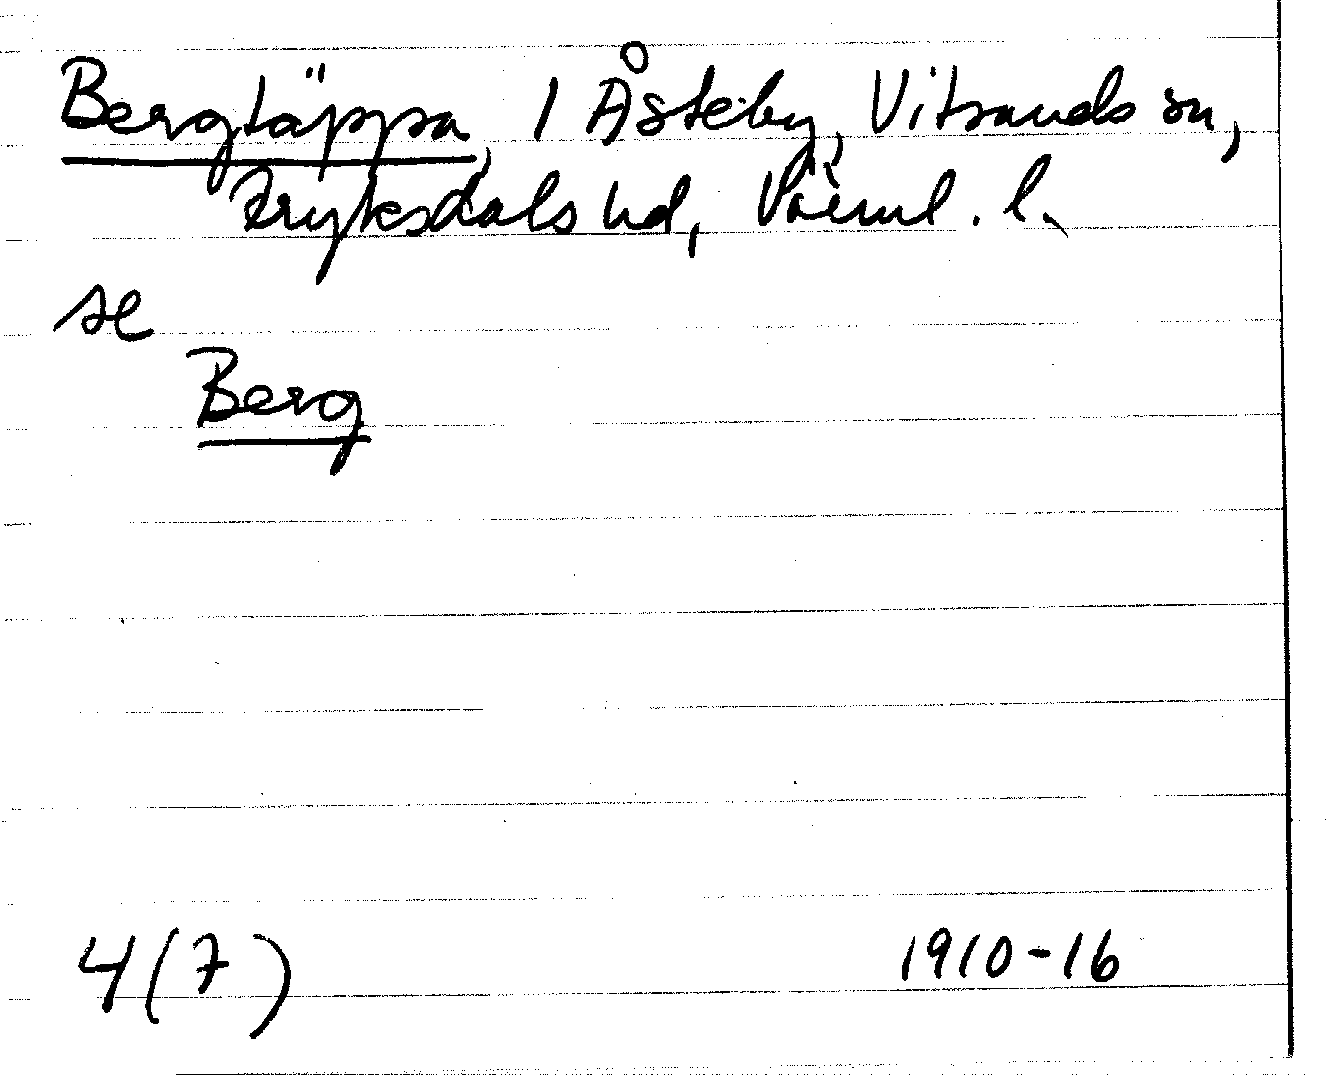 Bergtäppa, 1 Åsteby, Vitsands sn,
Fryksdals hd, Värml. l.
se
Berg
4(7)
1910-16